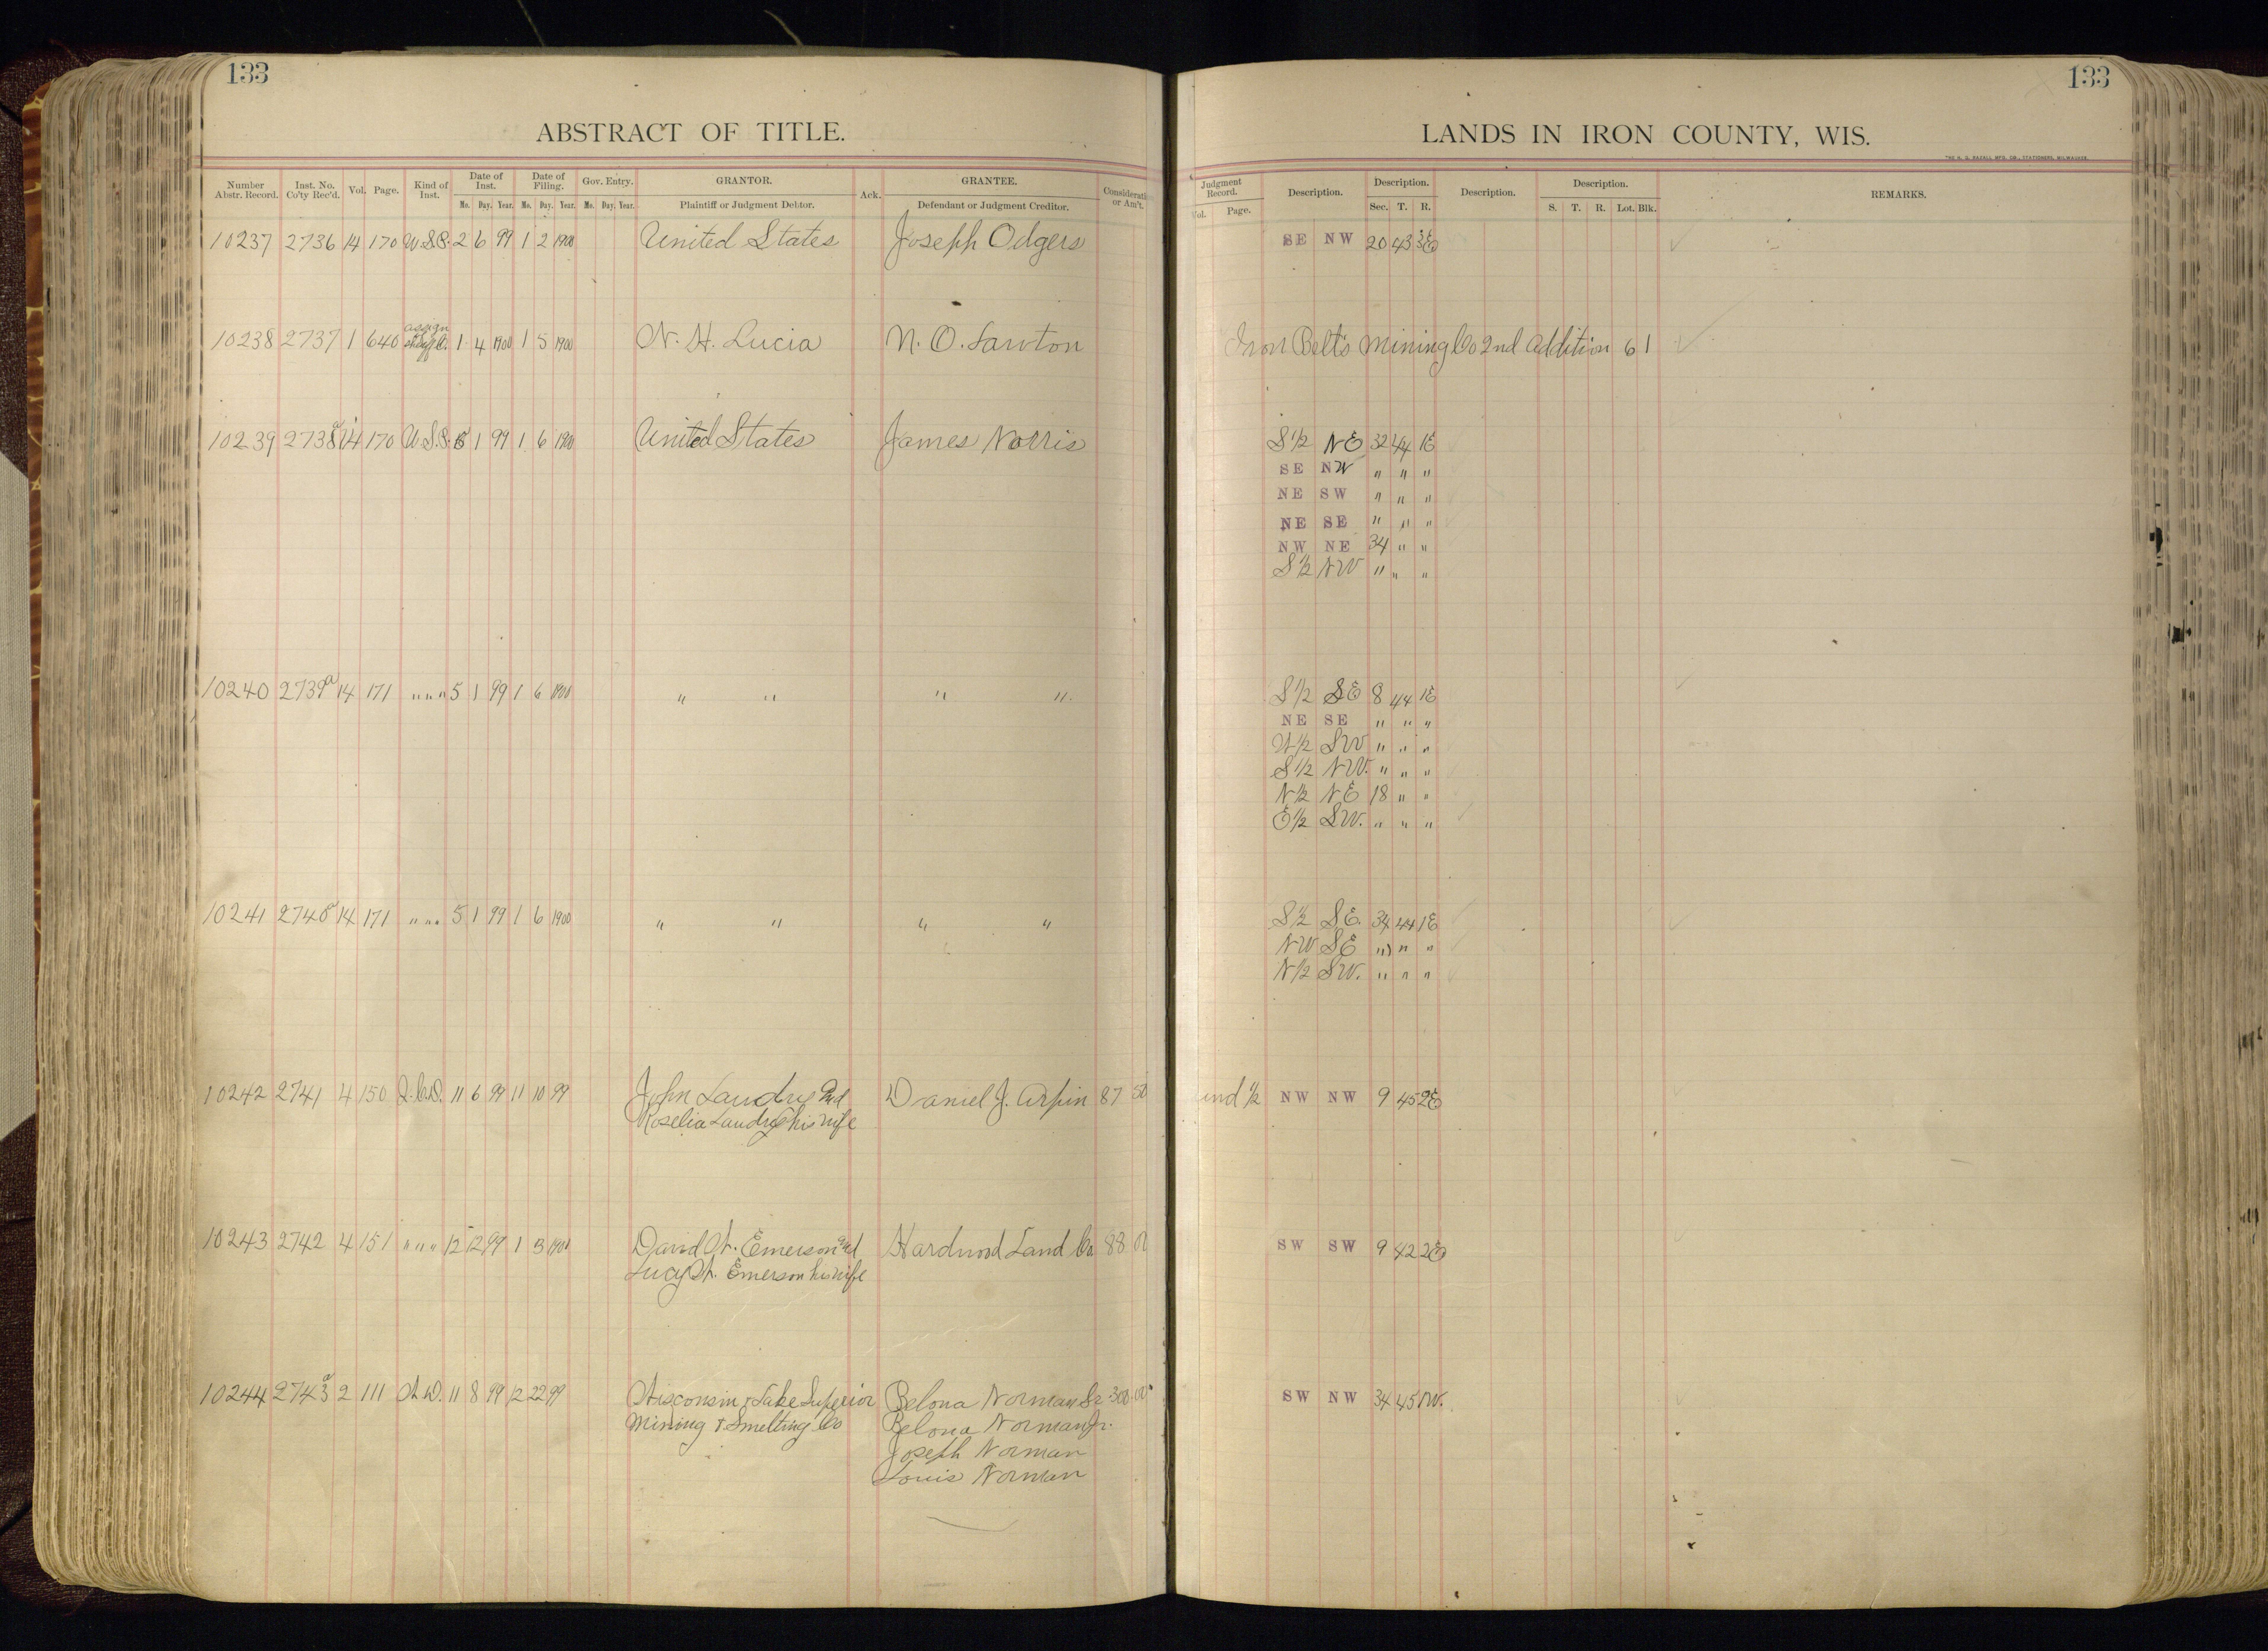 133
133
ABSTRACT OF TITLE.
LANDS IN IRON COUNTY, WIS.
THE H. G. RAZALL MFG. CO., STATIONERS, MILWAUKEE.
Number Abstr. Record. Inst. No. Co'ty Rec'd. Vol. Page. Kind of Inst. Date of Inst. Mo. Day. Year. Date of Filing. Mo. Day. Year. Gov. Entry. Mo. Day. Year. GRANTOR. Plaintiff or Judgment Debtor. Ack. GRANTEE. Defendant or Judgment Creditor. Consideration or Am't.
Judgment Record. Vol. Page. Description. Description. Sec. T. R. Description. Description. S. T. R. Lot. Blk. REMARKS.
10237 2736 14 170 U.S.P. 2 6 99 1 2 1900 United States Joseph Odgers SE NW 20 43 3E
10238 2737 1 640 assign 1 4 1900 1 5 1900 N. H. Lucia N. O. Lawton Iron Belts Mining Co 2nd Addition 6 1
10239 2738a 14 170 U.S.P. 5 1 99 1 6 1900 United States James Norris S½ NE 32 44 1E
SE NW " " "
NE SW " " "
NE SE " " "
NW NE 34 " "
S½ NW " " "
10240 2739a 14 171 " " " 5 1 99 1 6 1900 " " " " S½ SE 8 44 1E
NE SE " " "
N½ SW " " "
S½ NW. " " "
N½ NE 18 " "
E½ SW. " " "
10241 2740a 14 171 " " " 5 1 99 1 6 1900 " " " " S½ SE. 34 44 1E
NW SE " " "
N½ SW. " " "
10242 2741 4 150 Q.C.D. 11 6 99 11 10 99 John Landry and Daniel J. Arpin 87 50 und ½ NW NW 9 45 2E
Roselia Landry his wife
10243 2742 4 151 " " " 12 12 99 1 3 1900 David W. Emerson and Hardwood Land Co 88 00 SW SW 9 42 2E
Lucy W. Emerson his wife
10244 2743a 2 111 W.D. 11 8 99 12 22 99 Wisconsin & Lake Superior Belona Norman Sr. 300.00 SW NW 34 45 1W.
Mining & Smelting Co Belona Norman Jr.
Joseph Norman
Louis Norman